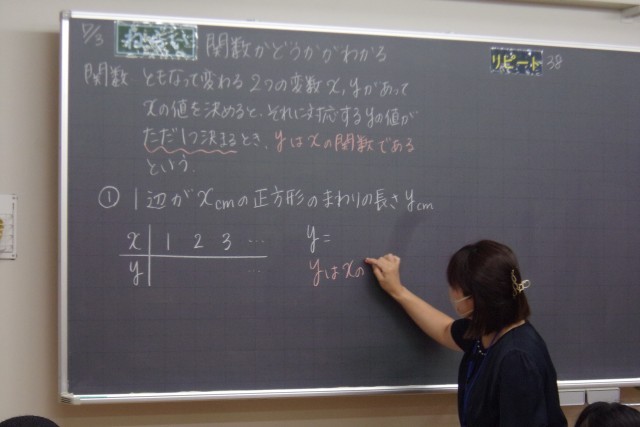 7/3 ねらい 関数かどうかがわかる
リピート 38
関数 ともなって変わる2つの変数x, yがあって
xの値を決めると、それに対応するyの値が
ただ1つ決まるとき、yはxの関数である
という.
① 1辺がxcmの正方形のまわりの長さycm
x 1 2 3 …
y …
y=
yはxの